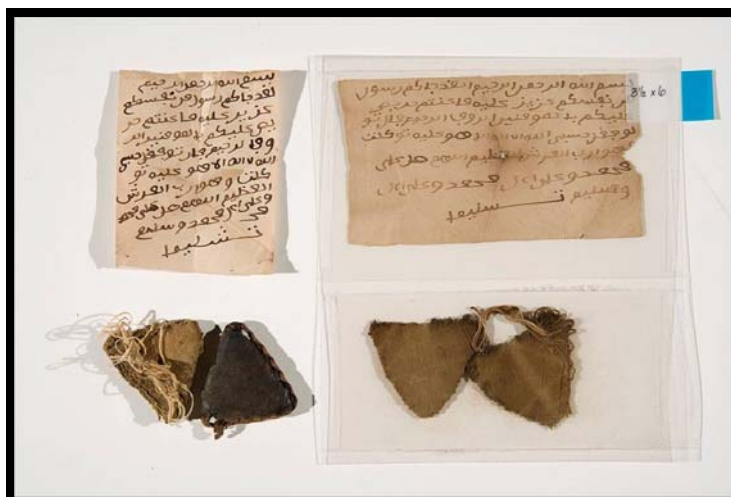 بسم الله الرحمن الرحيم
لقد جاكم رسول من نفسكم
عزيز عليه ما عنتم حر
يص عليكم بالمومنين الر
وفا الرحيم فان تولو فقل حسبي
الله لا اله الا هو عليه تو
كلت وهو رب العرش
العظيم اللهم صل على محمد
وعلى ال محمد وسلم
تسليما
بسم الله الرحمن الرحيم لقد جاكم رسول
من نفسكم عزيز عليه ما عنتم حريص
عليكم بالمومنين الروف الرحيم فان تو
لو فقل حسبي الله لا اله الا هو عليه توكلت
وهو رب العرش العظيم اللهم صل على
محمد وعلى ال محمد وعلى ال
وسليم تسليما
3½ x 6